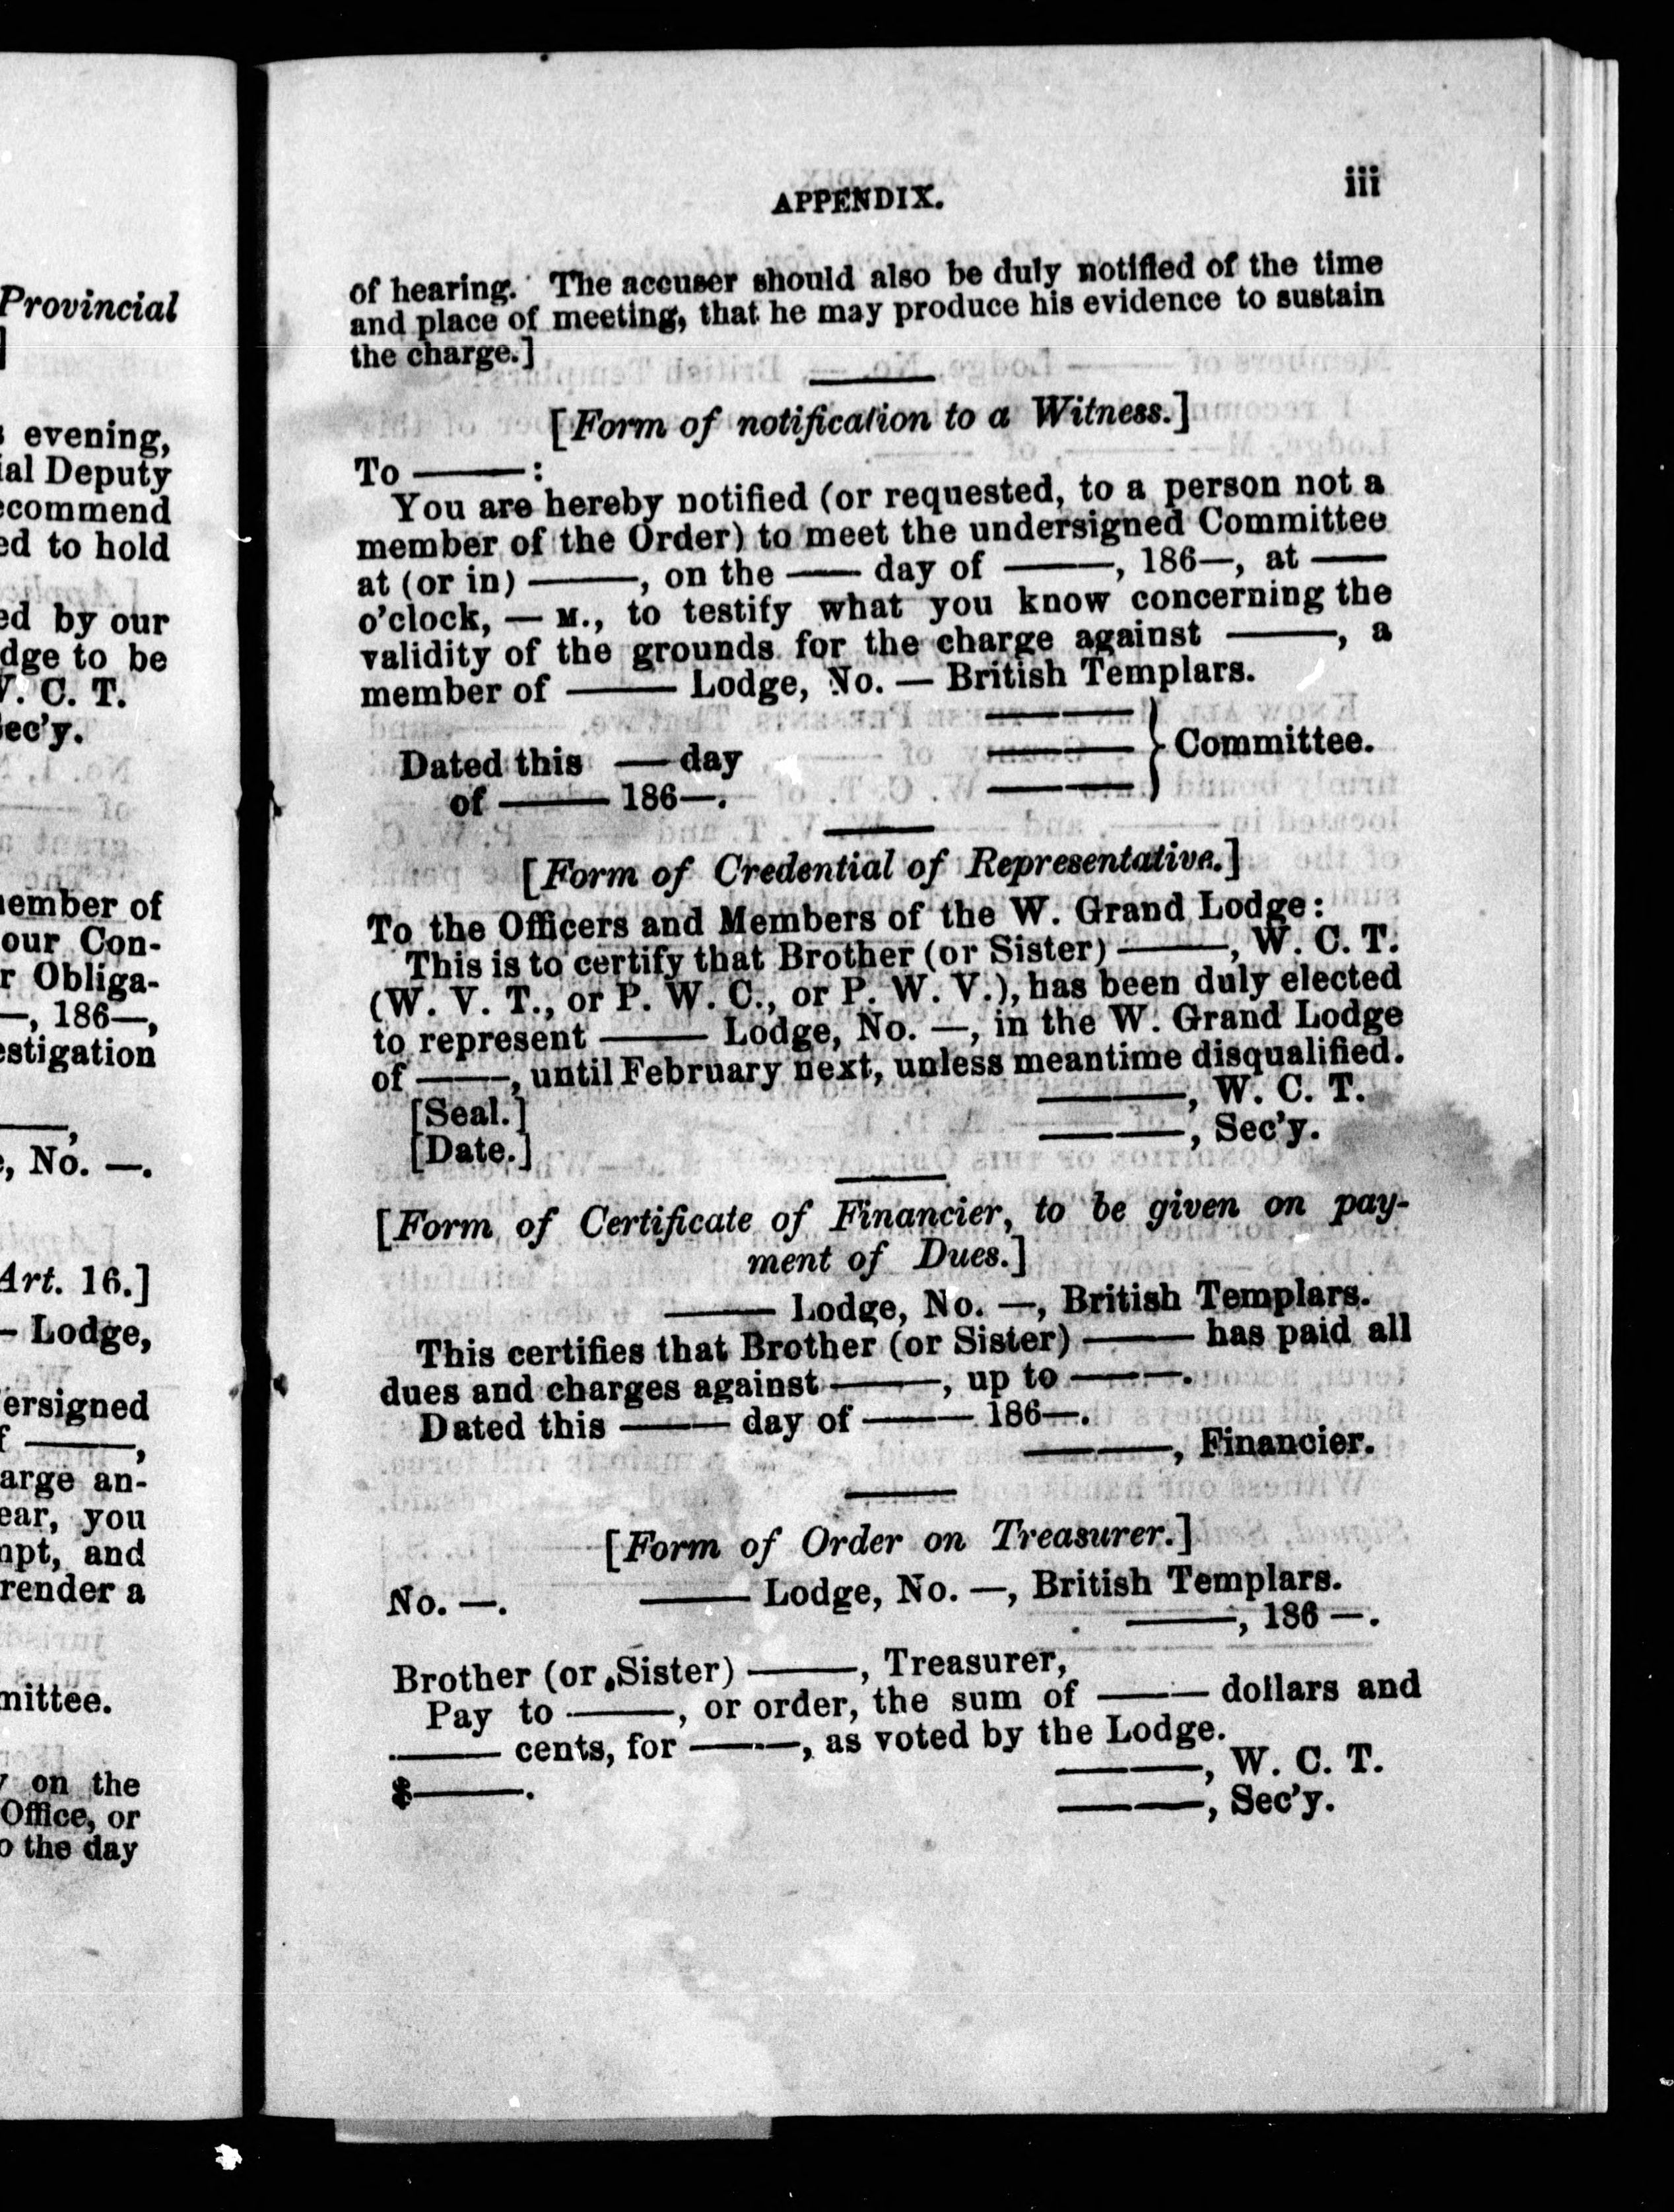 Provincial
]
evening,
ial Deputy
ecommend
ed to hold
ed by our
dge to be
V. C. T.
Sec'y.
ember of
our Con-
r Obliga-
—, 186—,
estigation
———,
, No. —.
Art. 16.]
— Lodge,
ersigned
f ———,
arge an-
ear, you
mpt, and
render a
mittee.
on the
Office, or
o the day
APPENDIX.
iii
of hearing. The accuser should also be duly notified of the time
and place of meeting, that he may produce his evidence to sustain
the charge.]
[Form of notification to a Witness.]
To ———:
You are hereby notified (or requested, to a person not a
member of the Order) to meet the undersigned Committee
at (or in) ———, on the —— day of ———, 186—, at ——
o'clock, — M., to testify what you know concerning the
validity of the grounds for the charge against ———, a
member of ——— Lodge, No. — British Templars.
————
Dated this — day ———— } Committee.
of ——— 186—. ————
[Form of Credential of Representative.]
To the Officers and Members of the W. Grand Lodge:
This is to certify that Brother (or Sister) ———, W. C. T.
(W. V. T., or P. W. C., or P. W. V.), has been duly elected
to represent ——— Lodge, No. —, in the W. Grand Lodge
of ———, until February next, unless meantime disqualified.
[Seal.] ————, W. C. T.
[Date.] ————, Sec'y.
[Form of Certificate of Financier, to be given on pay-
ment of Dues.]
——— Lodge, No. —, British Templars.
This certifies that Brother (or Sister) ——— has paid all
dues and charges against ———, up to ———.
Dated this ——— day of ——— 186—.
————, Financier.
[Form of Order on Treasurer.]
No. —. ——— Lodge, No. —, British Templars.
———, 186 —.
Brother (or Sister) ———, Treasurer,
Pay to ———, or order, the sum of ——— dollars and
——— cents, for ———, as voted by the Lodge.
————, W. C. T.
$———. ————, Sec'y.